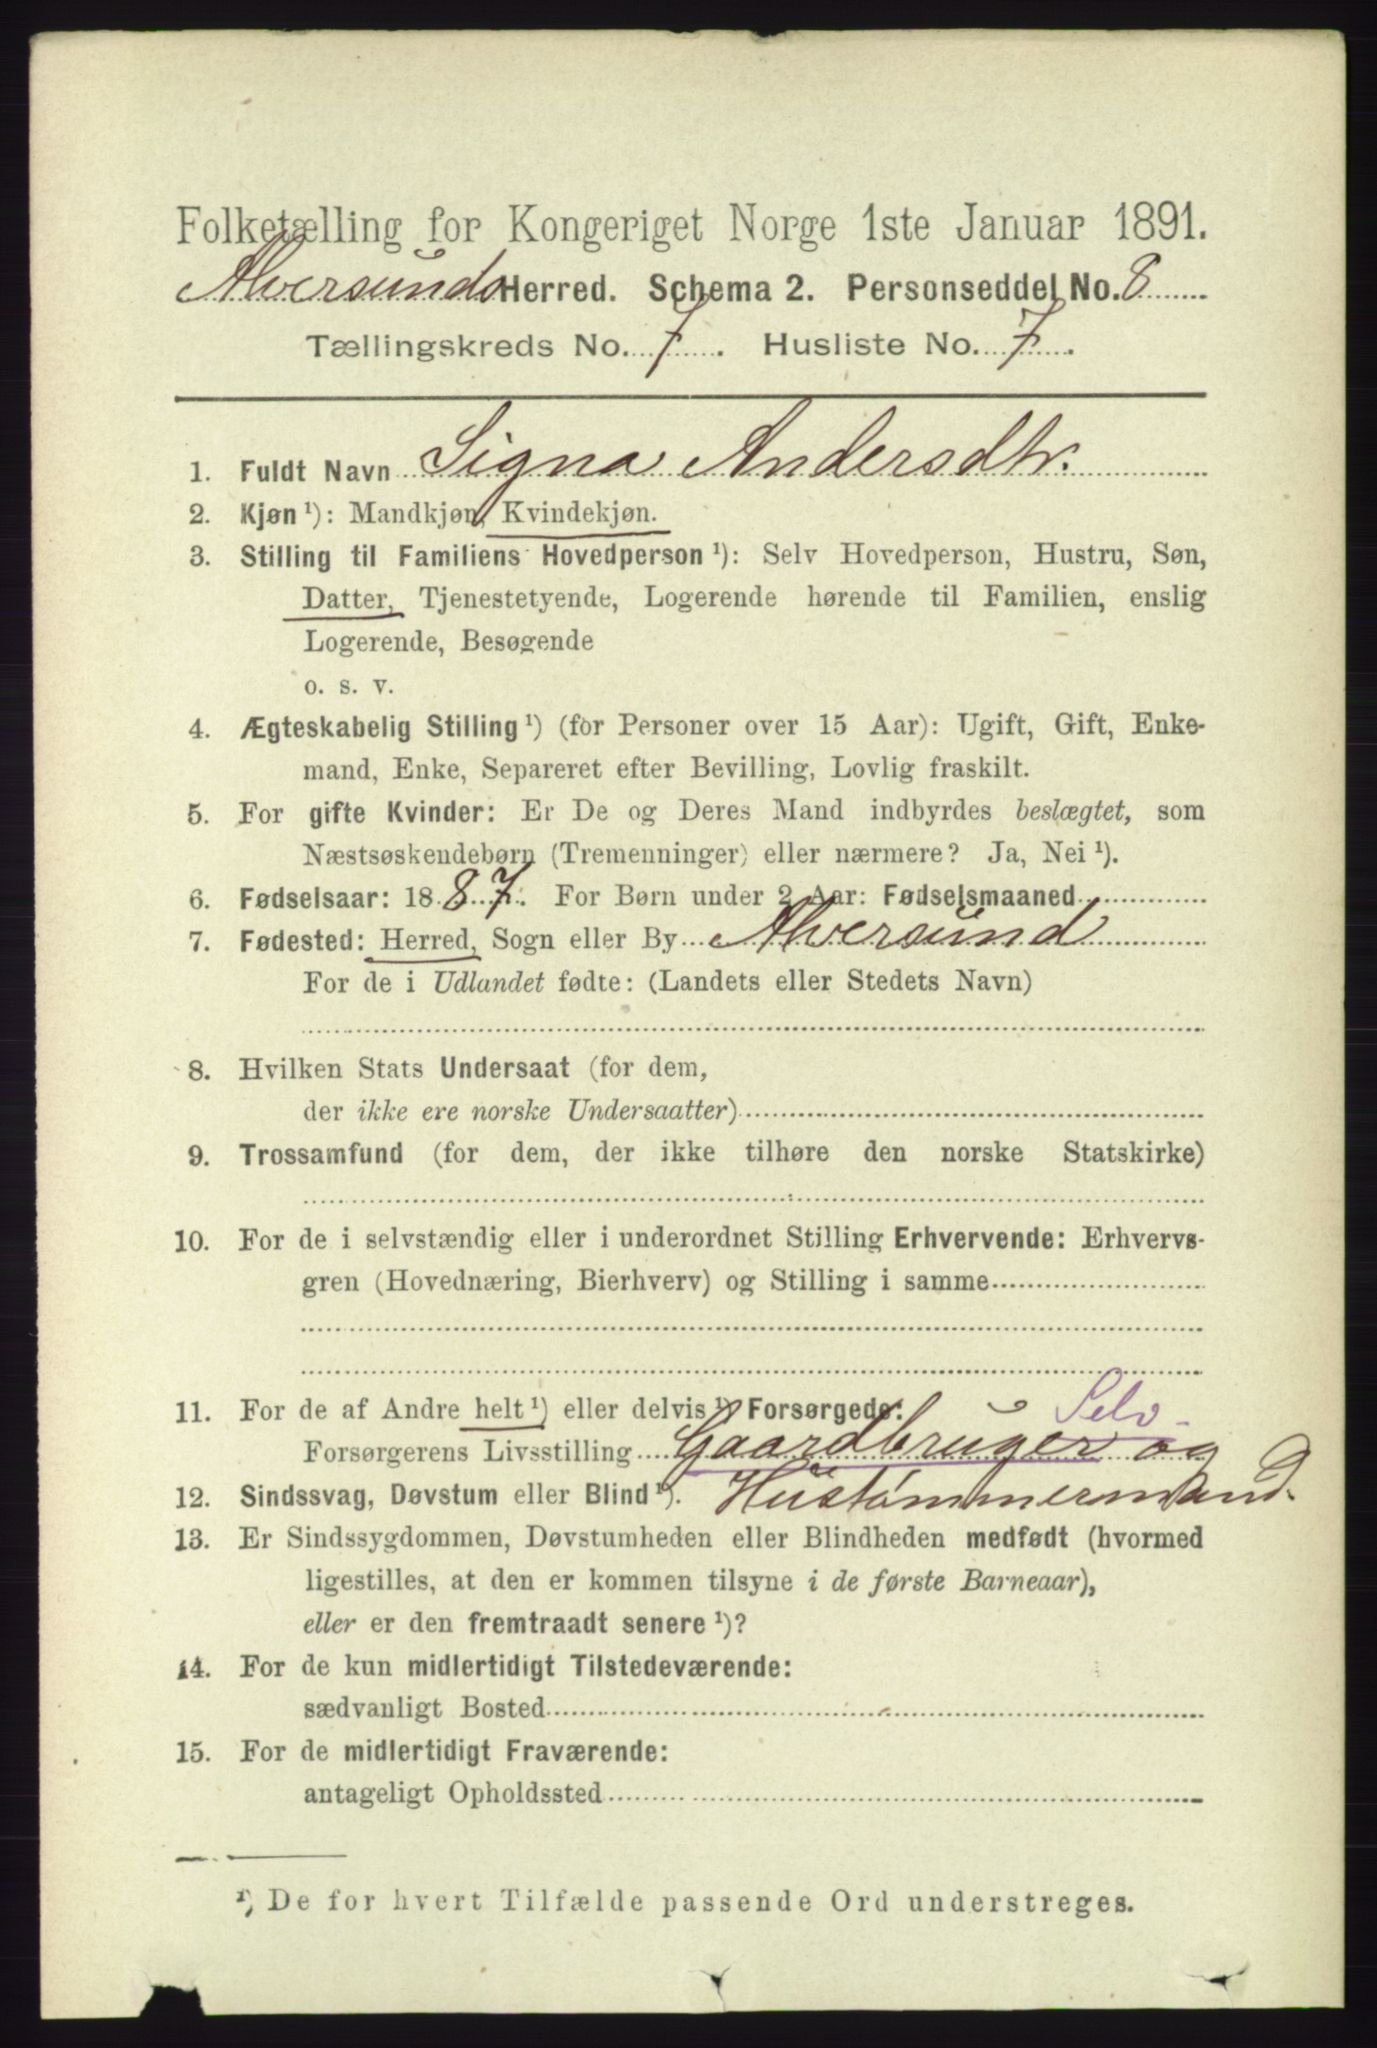 Folketælling for Kongeriget Norge 1ste Januar 1891.
Alversunds Herred. Schema 2. Personseddel No. 8
Tællingskreds No. 7. Husliste No. 7.
1. Fuldt Navn Signa Andersdtr.
2. Kjøn ¹): Mandkjøn, Kvindekjøn.
3. Stilling til Familiens Hovedperson ¹): Selv Hovedperson, Hustru, Søn,
Datter, Tjenestetyende, Logerende hørende til Familien, enslig
Logerende, Besøgende
o. s. v.
4. Ægteskabelig Stilling ¹) (for Personer over 15 Aar): Ugift, Gift, Enke-
mand, Enke, Separeret efter Bevilling, Lovlig fraskilt.
5. For gifte Kvinder: Er De og Deres Mand indbyrdes beslægtet, som
Næstsøskendebørn (Tremenninger) eller nærmere? Ja, Nei ¹).
6. Fødselsaar: 1887. For Børn under 2 Aar: Fødselsmaaned
7. Fødested: Herred, Sogn eller By Alversund
For de i Udlandet fødte: (Landets eller Stedets Navn)
8. Hvilken Stats Undersaat (for dem,
der ikke ere norske Undersaatter)
9. Trossamfund (for dem, der ikke tilhøre den norske Statskirke)
10. For de i selvstændig eller i underordnet Stilling Erhvervende: Erhvervs-
gren (Hovednæring, Bierhverv) og Stilling i samme
11. For de af Andre helt ¹) eller delvis ¹) Forsørgede: Selv
Forsørgerens Livsstilling Gaardbruger og
12. Sindssvag, Døvstum eller Blind ¹). Hustømmermand.
13. Er Sindssygdommen, Døvstumheden eller Blindheden medfødt (hvormed
ligestilles, at den er kommen tilsyne i de første Barneaar),
eller er den fremtraadt senere ¹)?
14. For de kun midlertidigt Tilstedeværende:
sædvanligt Bosted
15. For de midlertidigt Fraværende:
antageligt Opholdssted
¹) De for hvert Tilfælde passende Ord understreges.